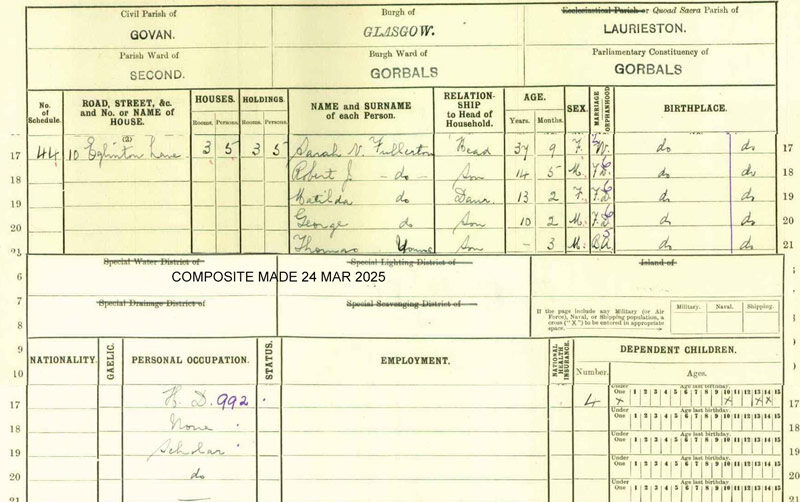 Civil Parish of
GOVAN.
Burgh of
GLASGOW.
Ecclesiastical Parish or Quoad Sacra Parish of
LAURIESTON.
Parish Ward of
SECOND.
Burgh Ward of
GORBALS
Parliamentary Constituency of
GORBALS
No. of Schedule.
ROAD, STREET, &c. and No. or NAME of HOUSE.
HOUSES.
Rooms. Persons.
HOLDINGS.
Rooms. Persons.
NAME and SURNAME of each Person.
RELATIONSHIP to Head of Household.
AGE.
Years. Months.
SEX.
MARRIAGE ORPHANHOOD
BIRTHPLACE.
(2)
17 44 10 Eglinton Lane 3 5 3 5 Sarah V. Fullerton Head 37 9 F. W. do do 17
18 Robert J. - do - Son 14 5 M. F.D. do do 18
19 Matilda do Daur. 13 2 F. F.D. do do 19
20 George do Son 10 2 M. F.D. do do 20
21 Thomas Son - 3 M. do do 21
Special Water District of
Special Lighting District of
Island of
6
COMPOSITE MADE 24 MAR 2025
7
Special Drainage District of
Special Scavenging District of
8
If the page include any Military (or Air Force), Naval, or Shipping population, a cross ("X") to be entered in appropriate space.
Military. Naval. Shipping.
9
10
NATIONALITY.
GAELIC.
PERSONAL OCCUPATION.
STATUS.
EMPLOYMENT.
NATIONAL HEALTH INSURANCE.
DEPENDENT CHILDREN.
Number. Ages.
Under One Age last birthday. 1 2 3 4 5 6 7 8 9 10 11 12 13 14 15
17 H. D. 992 4 x x x x
18 None
Under One Age last birthday. 1 2 3 4 5 6 7 8 9 10 11 12 13 14 15
19 Scholar
Under One Age last birthday. 1 2 3 4 5 6 7 8 9 10 11 12 13 14 15
20 do
Under One Age last birthday. 1 2 3 4 5 6 7 8 9 10 11 12 13 14 15
21